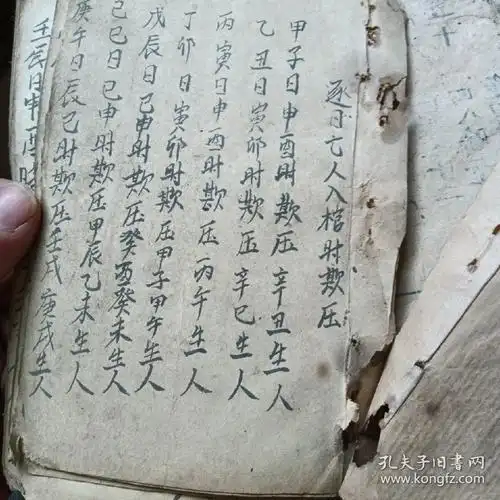 逐日亡人入棺时欺压
甲子日申酉时欺压辛丑生人
乙丑日寅卯时欺压辛巳生人
丙寅日申酉时欺压丙午生人
丁卯日寅卯时欺压甲子甲午生人
戊辰日巳申时欺压癸酉癸未生人
己巳日巳申时欺压甲辰乙未生人
庚午日辰巳时欺压壬戌庚戌生人
壬辰日申酉时
孔夫子旧书网
www.kongfz.com